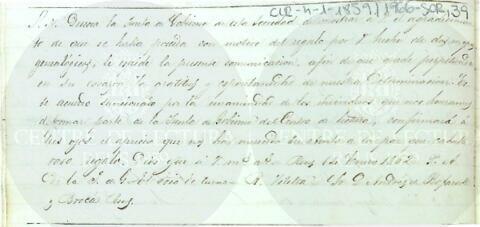 CLR-4-1-1859/1966-SOR,39
S. N. Deseosa la Junta de Gobierno de esta Sociedad demostrar a V. el agradecimien-
to de que se halla poseida con motivo del regalo por V. hecho de dos
genealogicos, le dirige la presente comunicacion, afin de que quede perpetuada
en su corazon la gratitud y espontaneidad de nuestra determinacion. Es-
te acuerdo sancionado por la unanimidad de los individuos que nos honramos
de formar parte de la Junta de Gobierno del Centro de Lectura, confirmará á
sus ojos el aprecio que nos ha merecido su atento a la par que
roso regalo. Dios gue á V. ms as. Reus 14 Enero 1862. P. A.
De la J. de G. El socio de turno A. Sr. D. Andrés de Bofarull
y Broca Reus.
CENTRE DE LECTURA